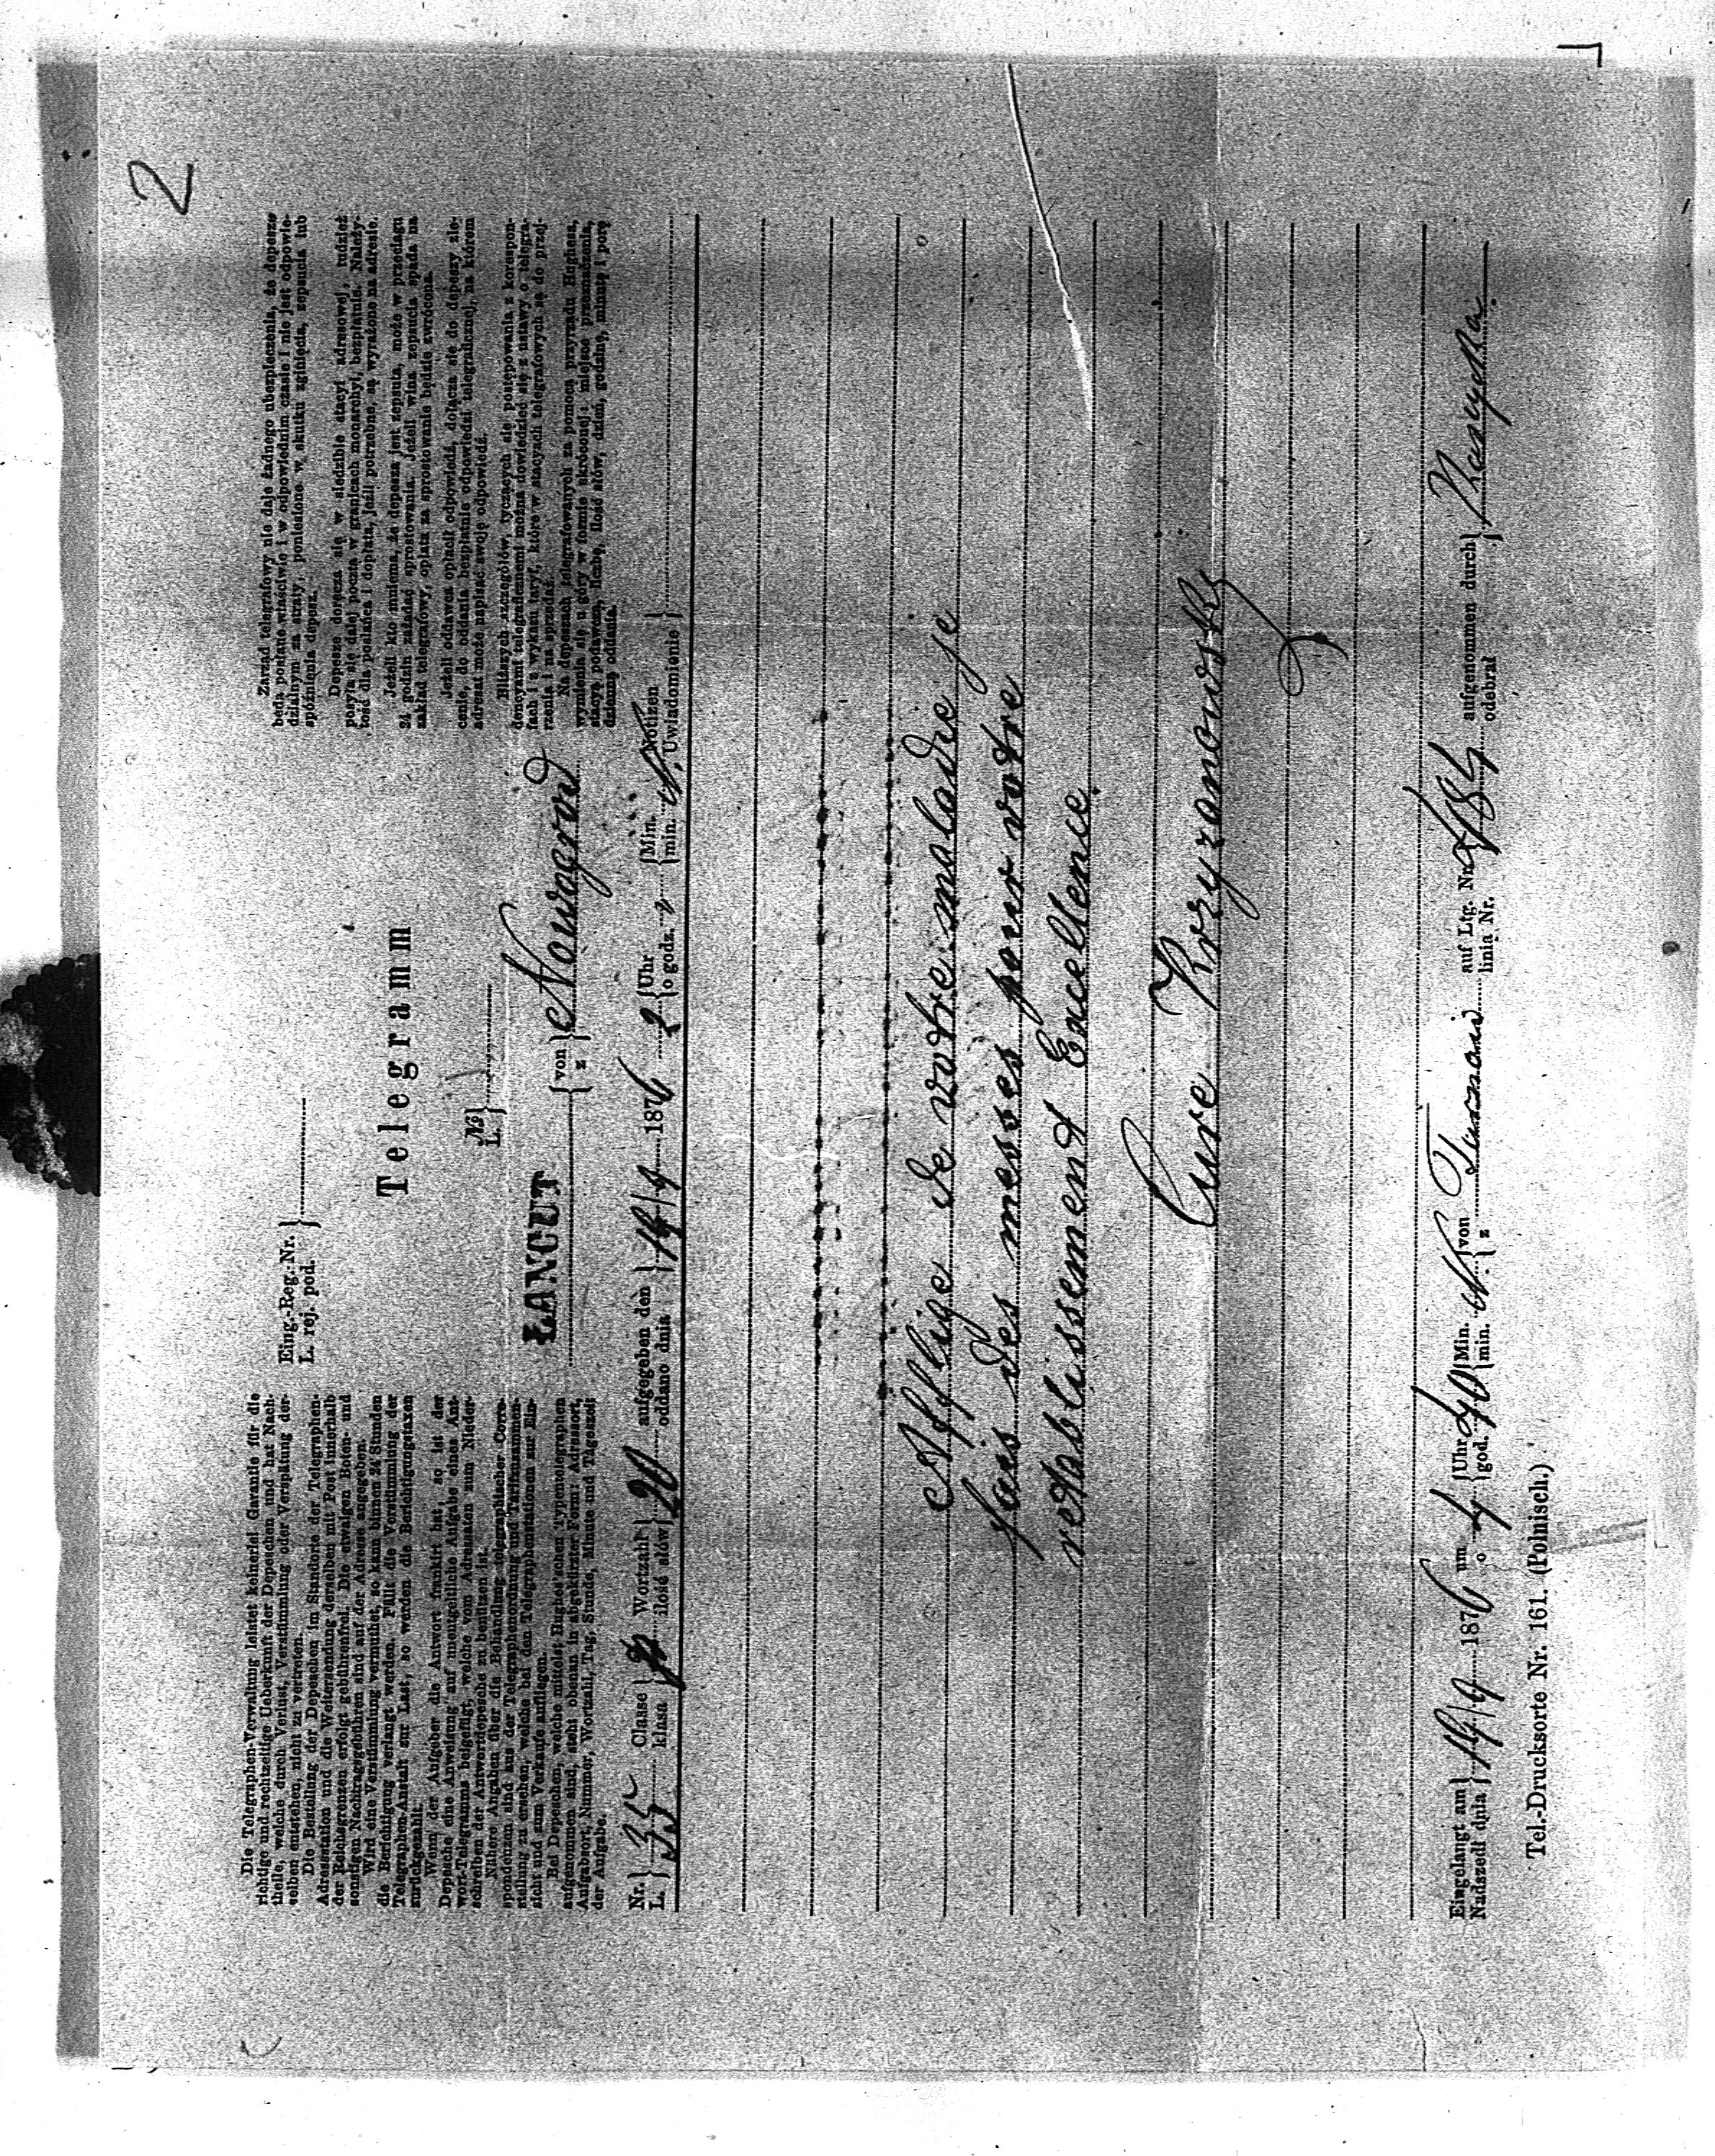 2
Die Telegraphen-Verwaltung leistet keinerlei Garantie für die
richtige und rechtzeitige Ueberkunft der Depeschen und hat Nach-
theile, welche durch Verlust, Verstümmlung oder Verspätung der-
selben entstehen, nicht zu vertreten.
Die Bestellung der Depeschen im Standorte der Telegraphen-
Adressstation und die Weitersendung derselben mit Post innerhalb
der Reichsgrenzen erfolgt gebührenfrei. Die etwaigen Boten- und
sonstigen Nachtragsgebühren sind auf der Adresse angegeben.
Wird eine Verstümmlung vermuthet, so kann binnen 24 Stunden
die Berichtigung verlangt werden. Fällt die Verstümmung der
Telegraphen-Anstalt zur Last, so werden die Berichtigungstaxen
zurückgezahlt.
Wenn der Aufgeber die Antwort frankirt hat, so ist der
Depesche eine Anweisung auf unentgeltliche Aufgabe eines Ant-
wort-Telegramms beigefügt, welche vom Adressaten zum Nieder-
schreiben der Antwortdepesche zu benützen ist.
Nähere Angaben über die Behandlung telegraphischer Corre-
spondenzen sind aus der Telegraphenordnung und Tarifzusammen-
stellung zu ersehen, welche bei den Telegraphenstationen zur Ein-
sicht und zum Verkaufe aufliegen.
Bei Depeschen, welche mittelst Hughes'schen Typentelegraphen
aufgenommen sind, steht obenan in abgekürzter Form: Adressort,
Aufgabsort, Nummer, Wortzahl, Tag, Stunde, Minute und Tageszeit
der Aufgabe.
Eing.-Reg.-Nr.
L. rej. pod.
Telegramm
№
L.
ŁANCUT von z Nowagrod
Zarząd telegrafowy nie daje żadnego ubezpieczenia, że depesze
będą posłane właściwie i w odpowiednim czasie i nie jest odpowie-
dzialnym za straty, poniesione w skutku zginięcia, zepsucia lub
spóźnienia depesz.
Depesze doręcza się w siedzibie stacyi adresowej, tudzież
posyła się dalej pocztą w granicach monarchyi, bezpłatnie. Należy-
tość dla posłańca i dopłata, jeźli potrzebne, są wyrażone na adresie.
Jeżeli kto mniema, że depesza jest zepsuta, może w przeciągu
24 godzin zażądać sprostowania. Jeżeli wina zepsucia spada na
zakład telegrafowy, opłata za sprostowanie będzie zwrócona.
Jeżeli oddawca opłacił odpowiedź, dołącza się do depeszy zle-
cenie, do oddania bezpłatnie odpowiedzi telegraficznej, na którem
adresat może napisać swoję odpowiedź.
Bliższych szczegółów, tyczących się postępowania z korespon-
dencyami telegraficznemi można dowiedzieć się z ustawy o telegra-
fach i z wykazu taryf, które w stacyach telegrafowych są do przej-
rzenia i na sprzedaż.
Na depeszach telegrafowanych za pomocą przyrządu Hughesa,
wymienia się u góry w formie skróconej: miejsce przeznaczenia,
stacyę podawczą, liczbę, ilość słów, dzień, godzinę, minutę i porę
dzienną oddania.
Nr. L. 35 Classe klasa Wortzahl ilość słów 20 aufgegeben den oddano dnia 14/9 1876 2 Uhr o godz. Min. min. Notizen Uwiadomienie
Afflige de votre maladie je
fais des messes pour votre
retablissement Excellence.
Cure Krzyzanowski
Eingelangt am Nadszedł dnia 14/9 1876 um o 4 Uhr god. 40 Min. min. N. von z Tarnow auf Ltg. Nr. linia Nr. aufgenommen durch odebrał
Tel.-Drucksorte Nr. 161. (Polnisch.)